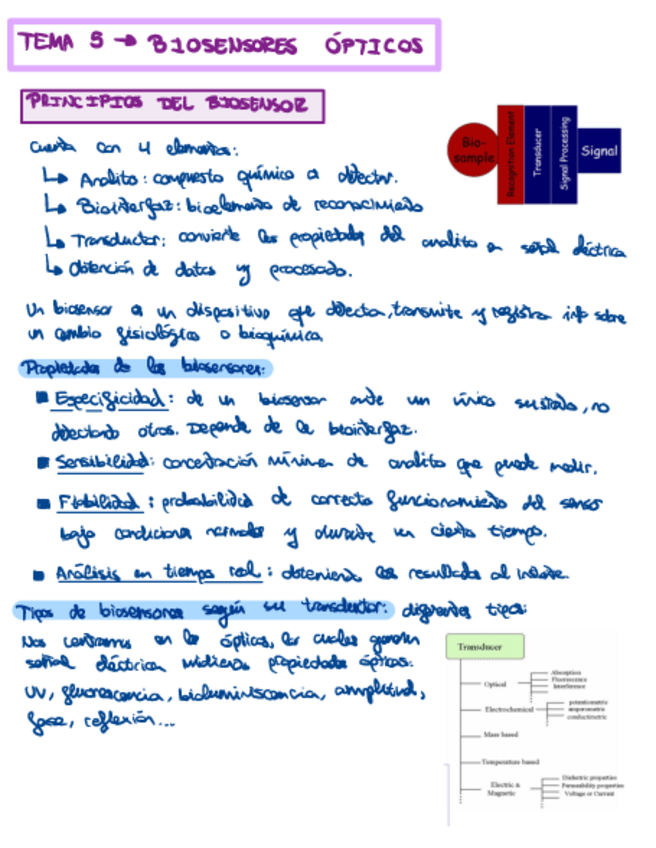 TEMA 5 → BIOSENSORES ÓPTICOS
PRINCIPIOS DEL BIOSENSOR
Cuenta con 4 elementos:
↳ Analito: compuesto químico a detectar.
↳ Biointerfaz: bioelemento de reconocimiento
↳ Transductor: convierte las propiedades del analito en señal eléctrica
↳ Obtención de datos y procesado.
Bio-
sample
Recognition Element
Transducer
Signal Processing
Signal
Un biosensor es un dispositivo que detecta, transmite y registra info sobre
un cambio fisiológico o bioquímico.
Propiedades de los biosensores:
■ Especificidad: de un biosensor ante un único sustrato, no
detectando otros. Depende de la biointerfaz.
■ Sensibilidad: concentración mínima de analito que puede medir.
■ Fiabilidad: probabilidad de correcto funcionamiento del sensor
bajo condiciones normales y durante un cierto tiempo.
■ Análisis en tiempo real: obteniendo los resultados al instante.
Tipos de biosensores según su transductor: diferentes tipos:
Nos centramos en los ópticos, los cuales generan
señal eléctrica midiendo propiedades ópticas:
UV, fluorescencia, bioluminiscencia, amplitud,
fase, reflexión...
Transducer
Optical
Absorption
Fluorescence
Interference
Electrochemical
potentiometric
amperometric
conductimetric
Mass based
Temperature based
Electric &
Magnetic
Dielectric properties
Permeability properties
Voltage or Current